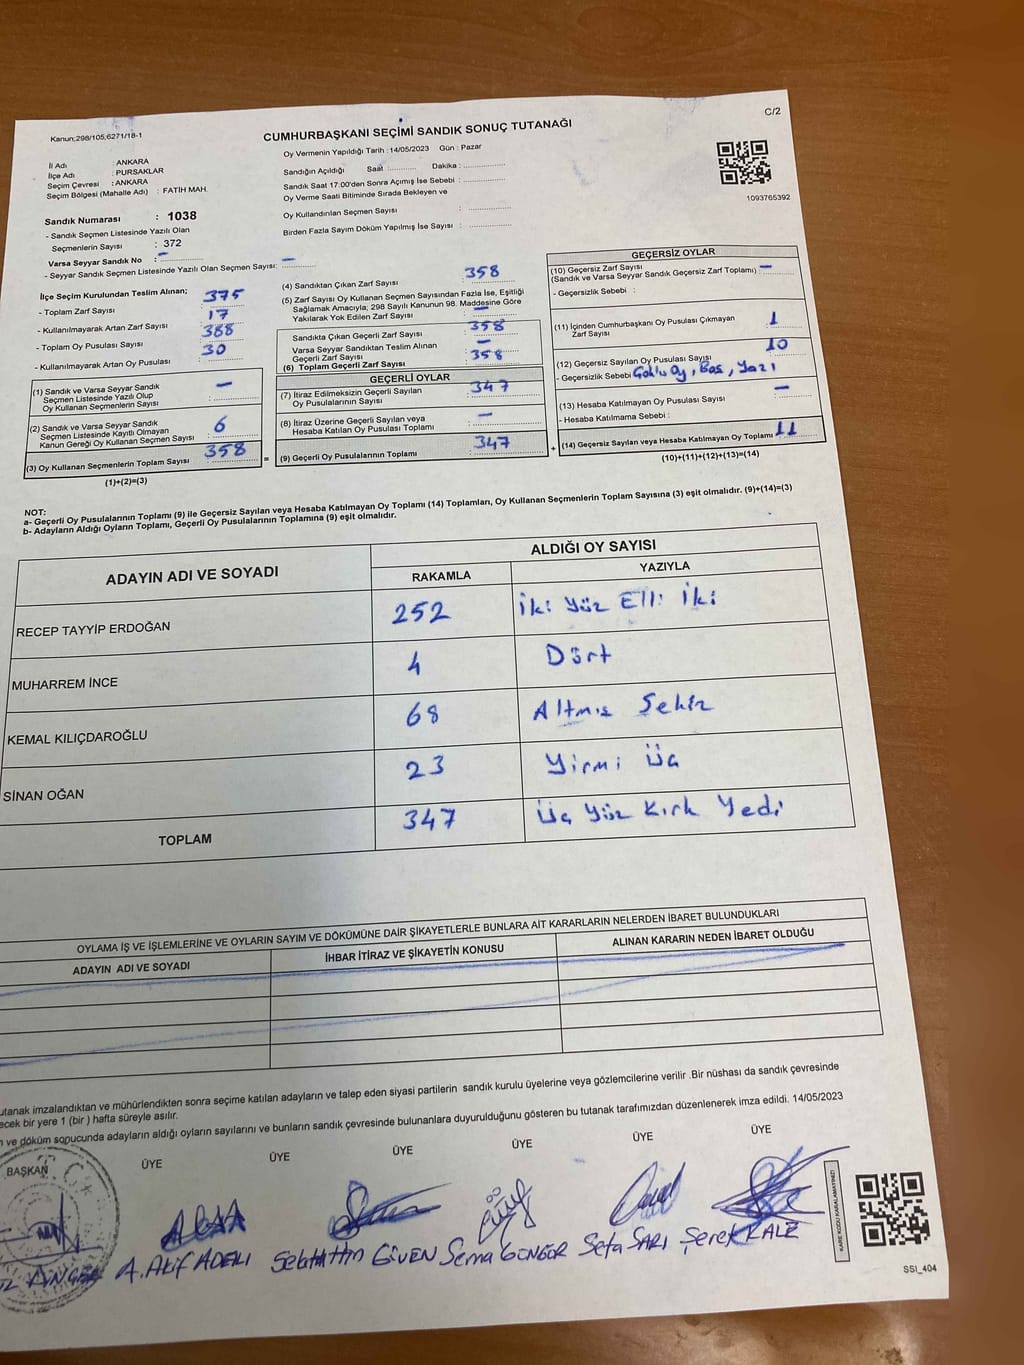 Kanun;298/105,6271/18-1
C/2
CUMHURBAŞKANI SEÇİMİ SANDIK SONUÇ TUTANAĞI
İl Adı : ANKARA
İlçe Adı : PURSAKLAR
Seçim Çevresi : ANKARA
Seçim Bölgesi (Mahalle Adı) : FATİH MAH.
Sandık Numarası : 1038
- Sandık Seçmen Listesinde Yazılı Olan
Seçmenlerin Sayısı : 372
Varsa Seyyar Sandık No : –
- Seyyar Sandık Seçmen Listesinde Yazılı Olan Seçmen Sayısı: –
Oy Vermenin Yapıldığı Tarih :14/05/2023 Gün : Pazar
Sandığın Açıldığı Saat :........... Dakika :..............
Sandık Saat 17:00'den Sonra Açımış İse Sebebi :..............
Oy Verme Saati Bitiminde Sırada Bekleyen ve
Oy Kullandırılan Seçmen Sayısı :..............
Birden Fazla Sayım Döküm Yapılmış İse Sayısı :..............
1093765392
İlçe Seçim Kurulundan Teslim Alınan;
- Toplam Zarf Sayısı : 375
- Kullanılmayarak Artan Zarf Sayısı : 17
- Toplam Oy Pusulası Sayısı : 388
- Kullanılmayarak Artan Oy Pusulası : 30
(1) Sandık ve Varsa Seyyar Sandık
Seçmen Listesinde Yazılı Olup
Oy Kullanan Seçmenlerin Sayısı : –
(2) Sandık ve Varsa Seyyar Sandık
Seçmen Listesinde Kayıtlı Olmayan
Kanun Gereği Oy Kullanan Seçmen Sayısı : 6
(3) Oy Kullanan Seçmenlerin Toplam Sayısı : 358
(1)+(2)=(3)
(4) Sandıktan Çıkan Zarf Sayısı : 358
(5) Zarf Sayısı Oy Kullanan Seçmen Sayısından Fazla İse, Eşitliği
Sağlamak Amacıyla; 298 Sayılı Kanunun 98. Maddesine Göre
Yakılarak Yok Edilen Zarf Sayısı : –
Sandıkta Çıkan Geçerli Zarf Sayısı : 358
Varsa Seyyar Sandıktan Teslim Alınan
Geçerli Zarf Sayısı : –
(6) Toplam Geçerli Zarf Sayısı : 358
GEÇERLİ OYLAR
(7) İtiraz Edilmeksizin Geçerli Sayılan
Oy Pusulalarının Sayısı : 347
(8) İtiraz Üzerine Geçerli Sayılan veya
Hesaba Katılan Oy Pusulası Toplamı : –
= (9) Geçerli Oy Pusulalarının Toplamı : 347
GEÇERSİZ OYLAR
(10) Geçersiz Zarf Sayısı
(Sandık ve Varsa Seyyar Sandık Geçersiz Zarf Toplamı) : –
- Geçersizlik Sebebi :
(11) İçinden Cumhurbaşkanı Oy Pusulası Çıkmayan
Zarf Sayısı : 1
(12) Geçersiz Sayılan Oy Pusulası Sayısı : 10
- Geçersizlik Sebebi : Çoklu Oy, Boş, Yazı
(13) Hesaba Katılmayan Oy Pusulası Sayısı : –
- Hesaba Katılmama Sebebi :
+ (14) Geçersiz Sayılan veya Hesaba Katılmayan Oy Toplamı : 11
(10)+(11)+(12)+(13)=(14)
NOT:
a- Geçerli Oy Pusulalarının Toplamı (9) ile Geçersiz Sayılan veya Hesaba Katılmayan Oy Toplamı (14) Toplamları, Oy Kullanan Seçmenlerin Toplam Sayısına (3) eşit olmalıdır. (9)+(14)=(3)
b- Adayların Aldığı Oyların Toplamı, Geçerli Oy Pusulalarının Toplamına (9) eşit olmalıdır.
ADAYIN ADI VE SOYADI
ALDIĞI OY SAYISI
RAKAMLA YAZIYLA
RECEP TAYYİP ERDOĞAN 252 İki Yüz Elli İki
MUHARREM İNCE 4 Dört
KEMAL KILIÇDAROĞLU 68 Altmış Sekiz
SİNAN OĞAN 23 Yirmi Üç
TOPLAM 347 Üç Yüz Kırk Yedi
OYLAMA İŞ VE İŞLEMLERİNE VE OYLARIN SAYIM VE DÖKÜMÜNE DAİR ŞİKAYETLERLE BUNLARA AİT KARARLARIN NELERDEN İBARET BULUNDUKLARI
ADAYIN ADI VE SOYADI İHBAR İTİRAZ VE ŞİKAYETİN KONUSU ALINAN KARARIN NEDEN İBARET OLDUĞU
utanak imzalandıktan ve mühürlendikten sonra seçime katılan adayların ve talep eden siyasi partilerin sandık kurulu üyelerine veya gözlemcilerine verilir .Bir nüshası da sandık çevresinde
ecek bir yere 1 (bir ) hafta süreyle asılır.
ve döküm sonucunda adayların aldığı oyların sayılarını ve bunların sandık çevresinde bulunanlara duyurulduğunu gösteren bu tutanak tarafımızdan düzenlenerek imza edildi. 14/05/2023
BAŞKAN ÜYE ÜYE ÜYE ÜYE ÜYE ÜYE
A. Akif ADELI Selahattin GÜVEN Sema GÜNGÖR Sefa SARI Şeref KALE
KARE KODU KARALAMAYINIZ!
SSI_404